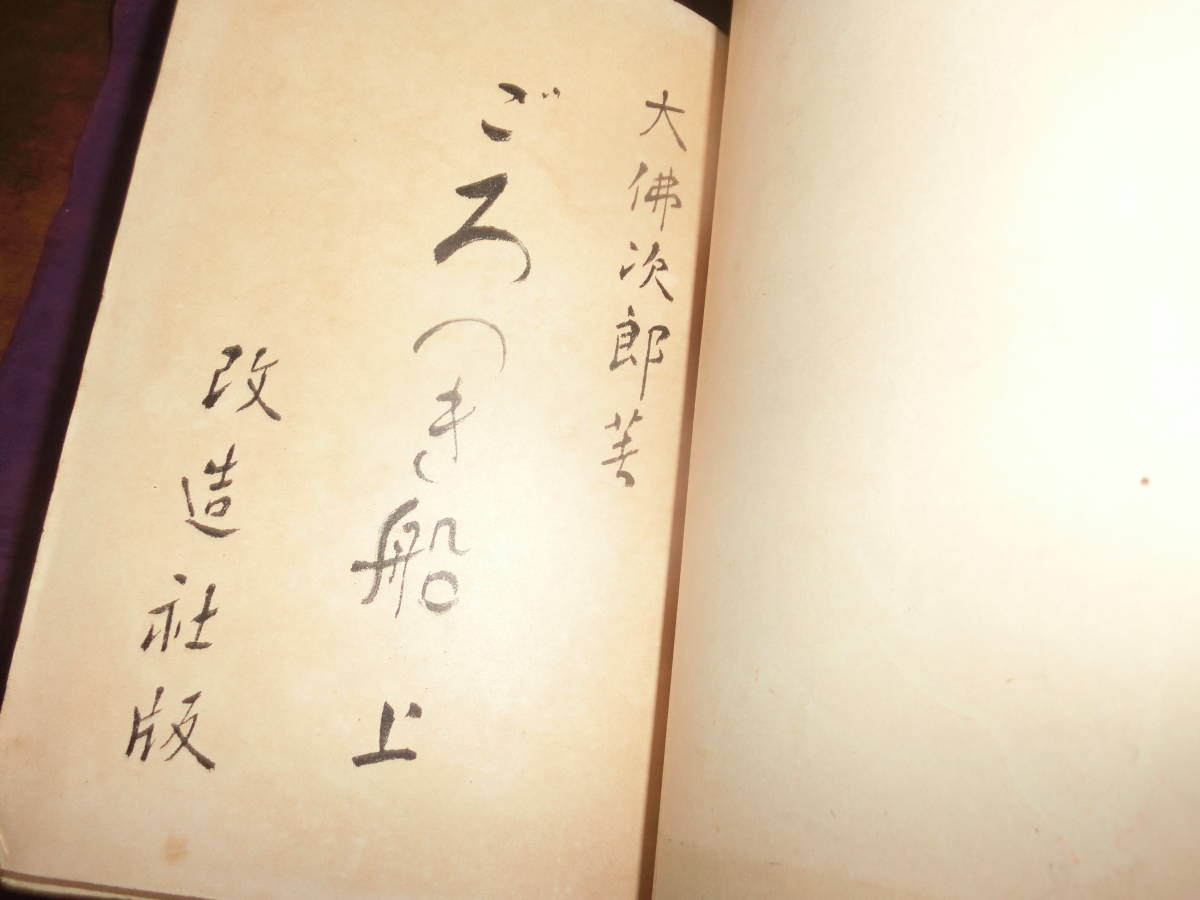 大佛次郎著
ごろつき船 上
改造社版